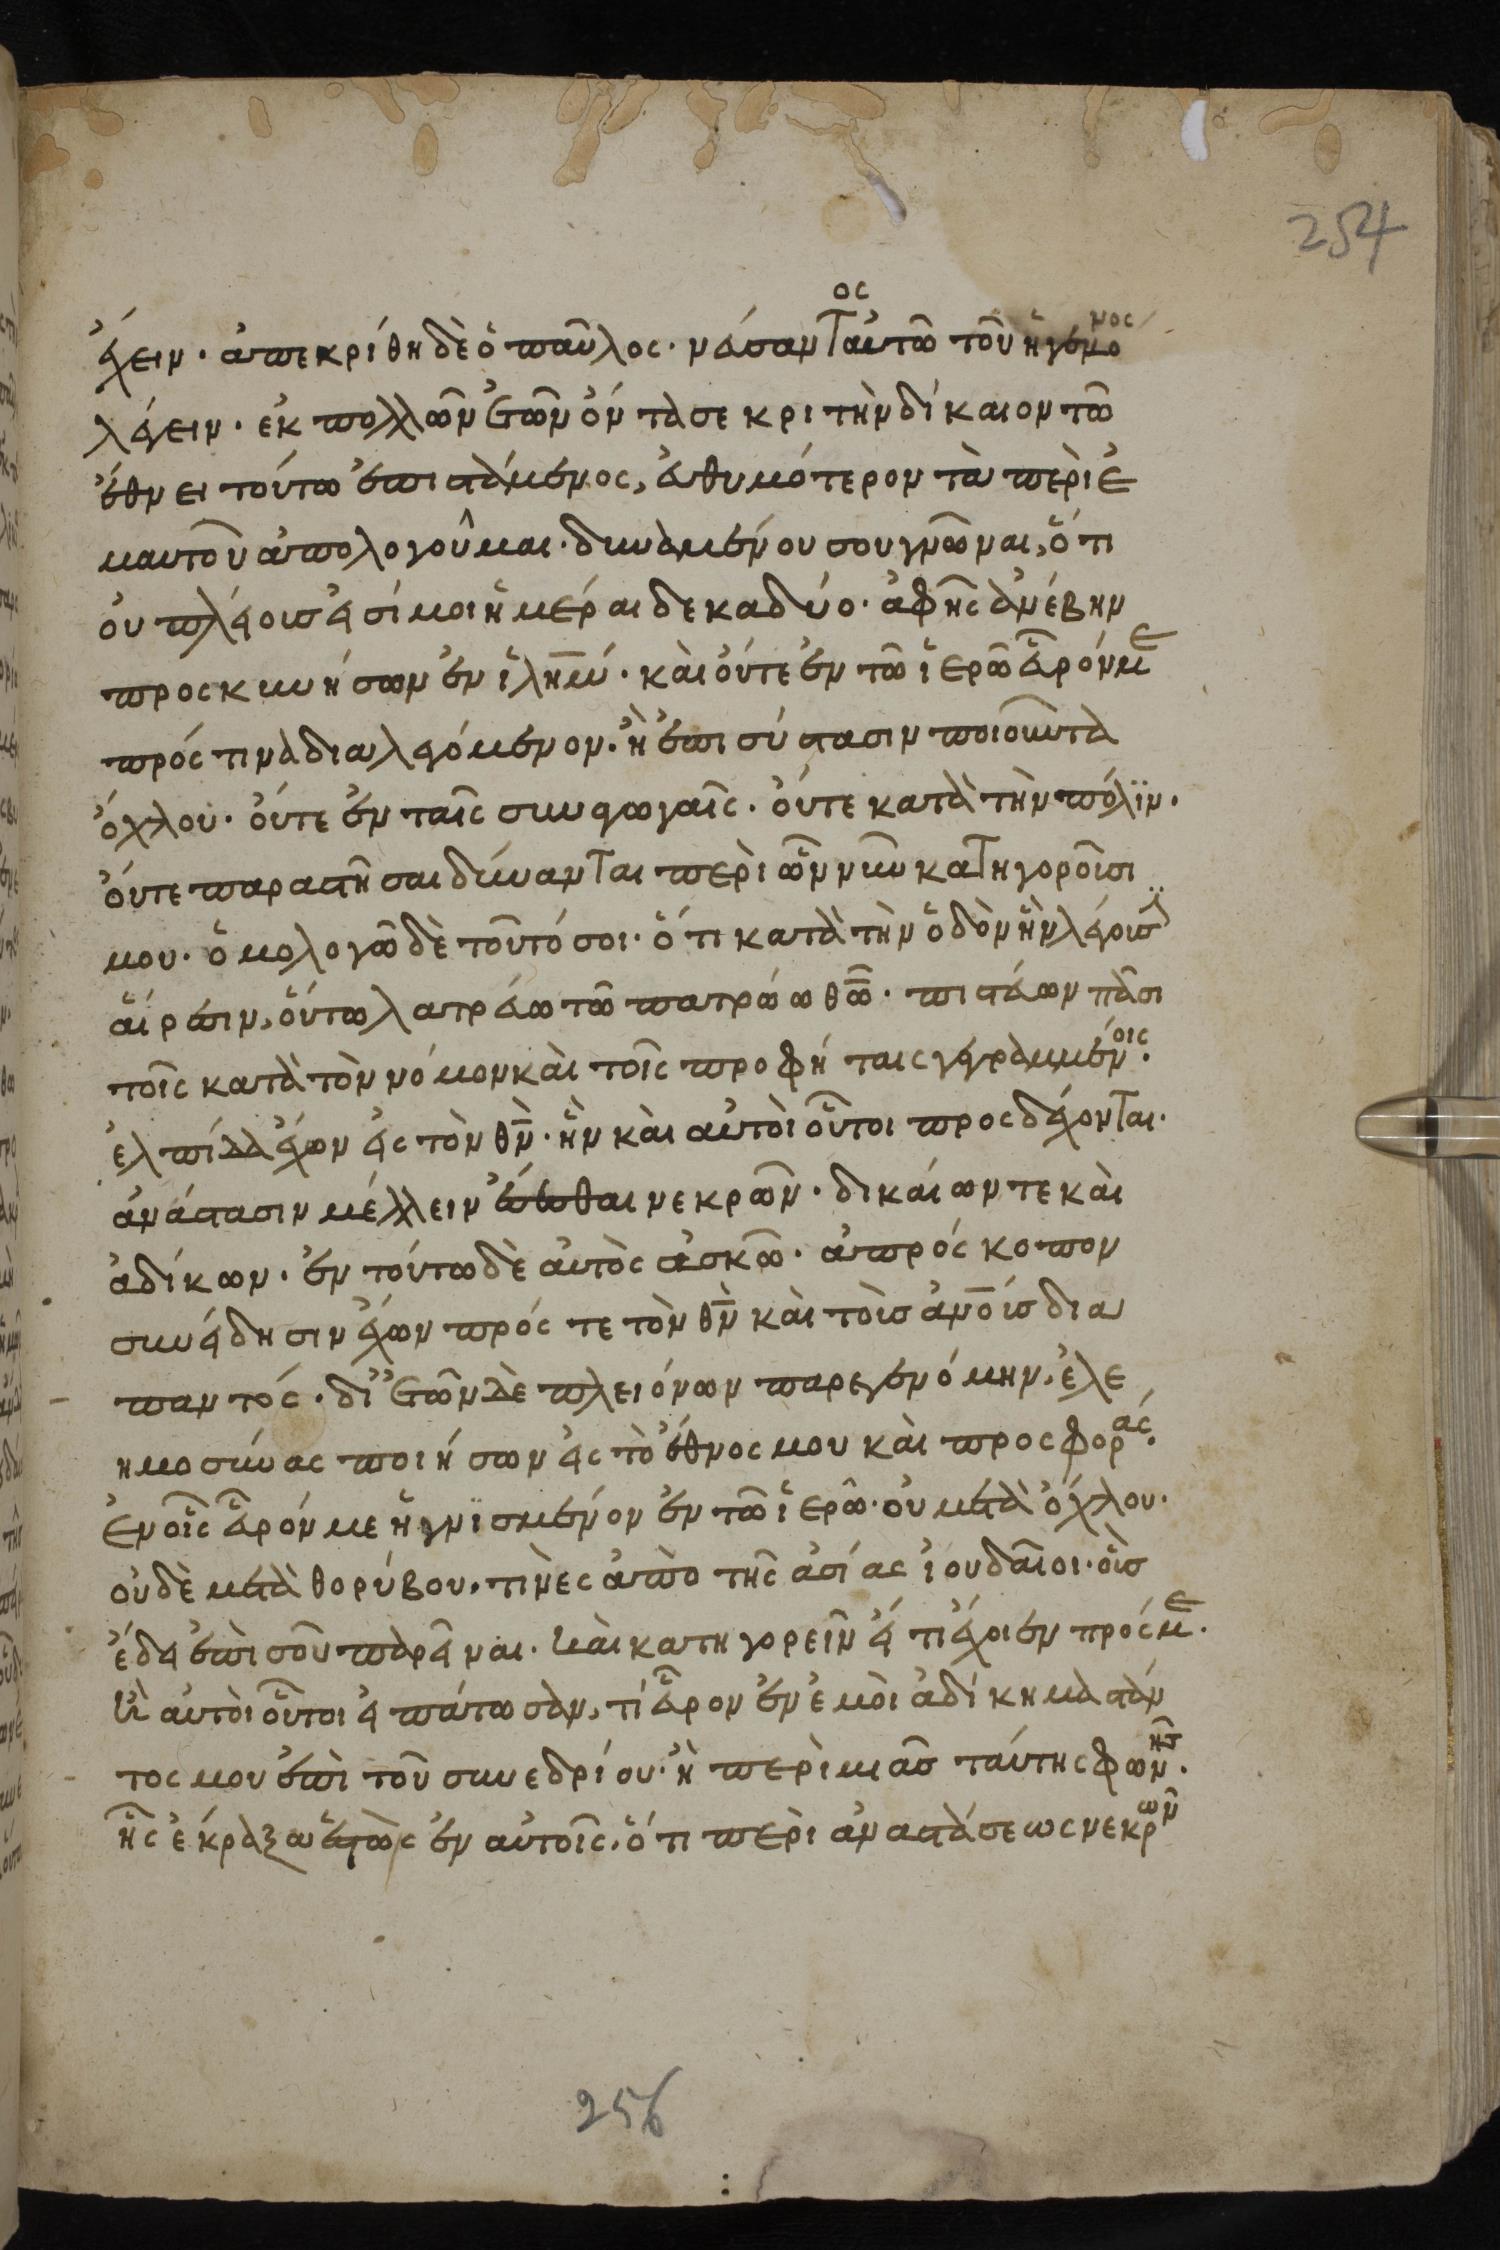 254
ἔχειν· ἀπεκρίθη δὲ ὁ παῦλος· νεύσαντος αὐτῶ τοῦ ἡγεμόνος
λέγειν· ἐκ πολλῶν ἐτῶν ὄντα σε κριτὴν δίκαιον τῶ
ἔθνει τούτω ἐπιστάμενος, εὐθυμότερον τὰ περὶ ἐ
μαυτοῦ ἀπολογοῦμαι· δυναμένου σου γνῶναι, ὅτι
οὐ πλείους εἰσί μοι ἡμέραι δεκαδύο· ἀφ ἧς ἀνέβην
προσκυνήσων ἐν ἱλημ· καὶ οὔτε ἐν τῶ ἱερῶ εὗρόν με
πρός τινα διαλεγόμενον· ἢ ἐπισύστασιν ποιοῦντα
ὄχλου· οὔτε ἐν ταῖς συναγωγαῖς· οὔτε κατὰ τὴν πόλϊν·
οὔτε παραστῆσαι δύνανται περὶ ὧν νῦν κατηγοροῦσι
μου· ὁμολογῶ δὲ τοῦτό σοι· ὅτι κατὰ τὴν ὁδὸν ἣν λέγουσϊν
αἵρεσιν, οὕτω λατρεύω τῶ πατρώω θῶ· πιστεύων πᾶσι
τοῖς κατὰ τὸν νόμον καὶ τοῖς προφήταις γεγραμμένοις·
ἐλπίδα ἔχων εἰς τὸν θν· ἣν καὶ αὐτοὶ οὗτοι προσδέχονται·
ἀνάστασιν μέλλειν ἔσεσθαι νεκρῶν· δικαίων τε καὶ
ἀδίκων· ἐν τούτω δὲ αὐτὸς ἀσκῶ· ἀπρόσκοπον
συνείδησιν ἔχων πρός τε τὸν θν καὶ τοὺς ἀνους δια
παντός· δι ἐτῶν δὲ πλειόνων παρεγενόμην, ἐλε
ημοσύνας ποιήσων εἰς τὸ ἔθνος μου καὶ προσφοράς·
ἐν οἷς εὗρόν με ἡγνϊσμένον ἐν τῶ ἱερῶ· οὐ μετὰ ὄχλου·
οὐδὲ μετὰ θορύβου, τινὲς ἀπὸ τῆς ἀσίας ἰουδαῖοι· οὓς
ἔδει ἐπὶ σοῦ παρεῖναι· καὶ κατηγορεῖν εἴ τι ἔχοιεν πρός με·
ἢ αὐτοὶ οὗτοι εἰπάτωσαν, τί εὗρον ἐν ἐμοὶ ἀδίκημα στάν
τος μου ἐπὶ τοῦ συνεδρίου· ἢ περὶ μιᾶς ταύτης φωνῆς·
ἧς ἔκραξα ἑστὼς ἐν αὐτοῖς, ὅτι περὶ ἀναστάσεως νεκρῶν
256